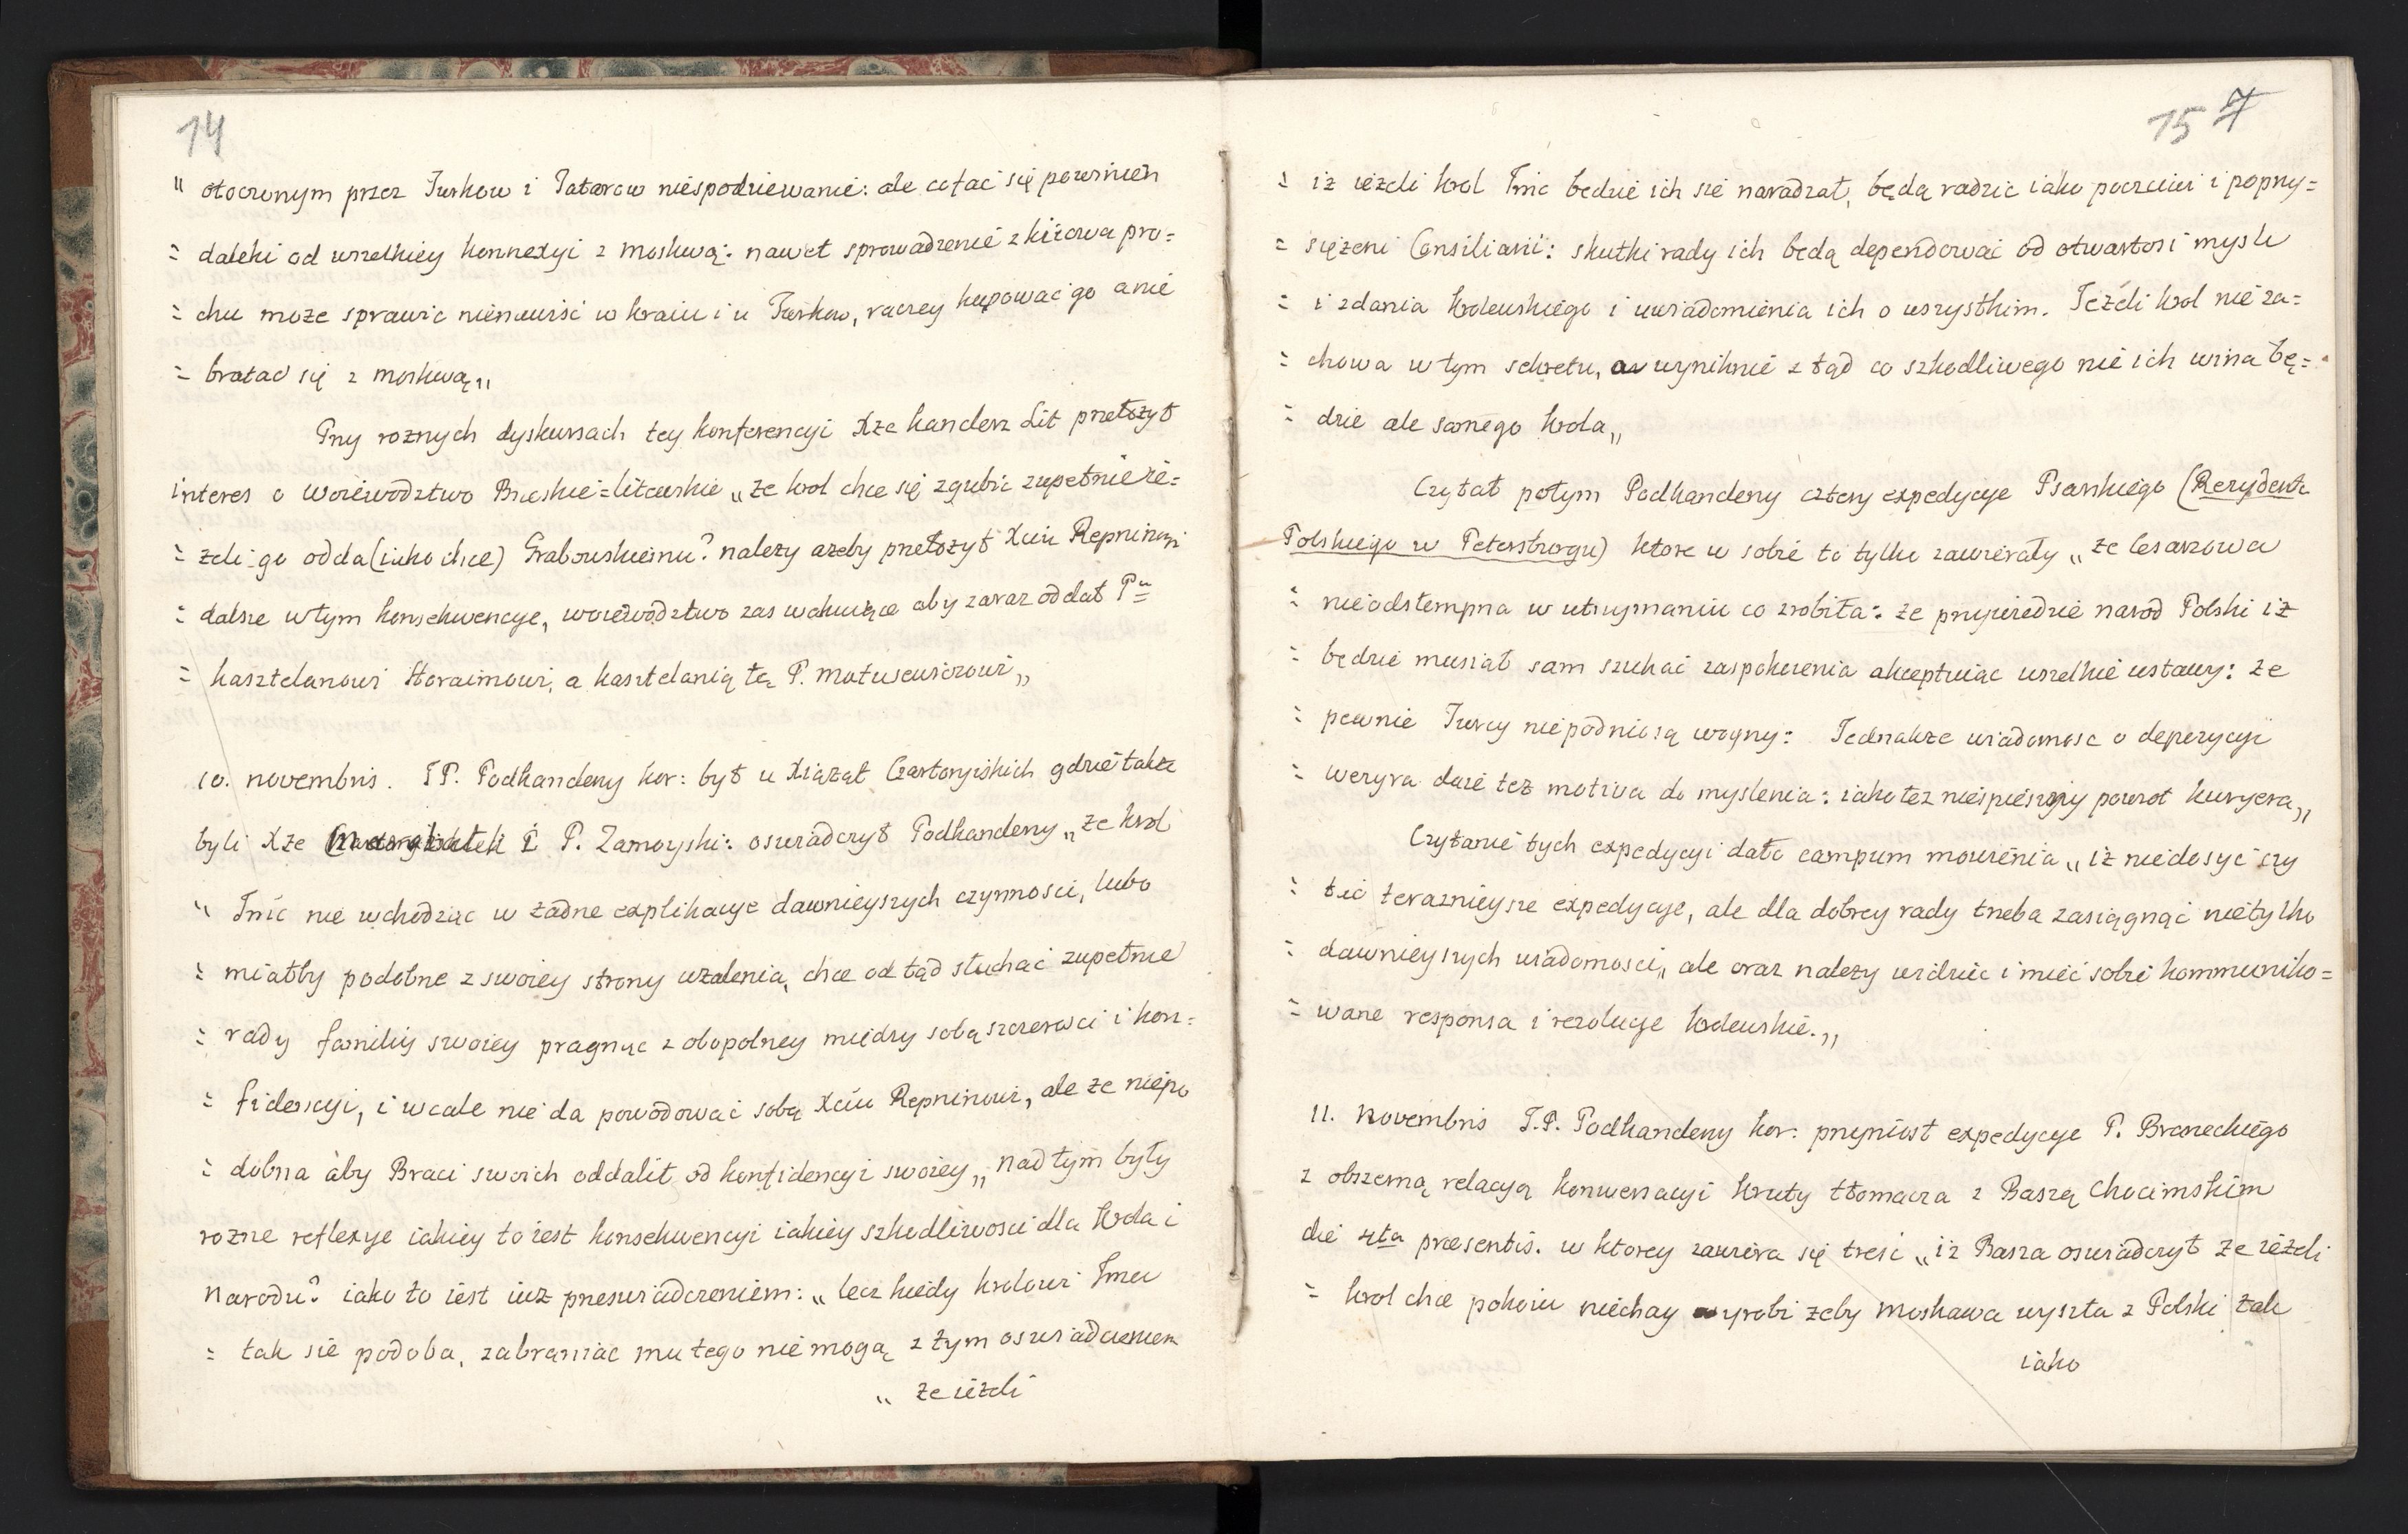 14
„ otoczonym przez Turkow i Tatarow niespodziewanie: ale cofać się powinien
= daleki od wszelkiey konnexyi z moskwą: nawet sprowadzenie z kiiowa pro=
= chu może sprawic nienawiść w kraiu i u Turkow, raczey kupować go a nie
= bratać się z moskwą„
Przy roznych dyskursach tey konferencyi Xże kanclerz Lit przełożył
interes o Woiewodztwo Brzeskie=litewskie „że krol chce się zgubić zupełnie ie=
= żeli go odda (iako chce) Grabowskiemu? należy azeby przełożył Xciu Repninowi
= dalsze w tym konsekwencye, woiewodztwo zas wakuiące aby zaraz oddał Pu
= kasztelanowi Horaimowi, a kasztelanią tę P. matusewiczowi„
10. novembris. JP. Podkanclerzy kor: był u Xiąząt Czartoryiskich gdzie także
byli Xże Marszałek i P. Zamoyski: oswiadczył Podkanclerzy „że krol
„ Jmć nie wchodząc w żadne explikacye dawnieyszych czynnosci, lubo
= miałby podobne z swoiey strony użalenia, chce od tąd słuchać zupełnie
= rady familiy swoiey pragnąc z obopolney między sobą szczerosci i kon=
= fidencyi, i wcale nie da powodować sobą Xciu Repninowi, ale że niepo
= dobna aby Braci swoich oddalił od konfidencyi swoiey„ nad tym były
rozne reflexye iakiey to iest konsekwencyi iakiey szkodliwosci dla Krola i
Narodu? iako to iest iuz przeswiadczeniem: „lecz kiedy krolowi Jmci
= tak sie podoba, zabraniac mu tego nie mogą z tym oswiadczeniem
„ że ieżeli
15 7
= iż ieżeli krol Jmć będzie ich sie naradzał, będą radzic iako poczciwi i poprzy=
= siężeni Consiliarii: skutki rady ich będą dependować od otwartosi mysli
= i zdania krolewskiego i uwiadomienia ich o wszystkim. Jeżeli krol nie za=
= chowa w tym sekretu, wyniknie z tąd co szkodliwego nie ich wina bę=
= dzie ale samego krola„
Czytał potym Podkanclerzy cztery expedycye Psarskiego (Rezydenta
Polskiego w Petersburgu) ktore w sobie to tylko zawierały „że Cesarzowa
= nieodstempna w utrzymaniu co zrobiła: że przywiedzie narod Polski iż
= będzie musiał sam szukać zaspokoienia akceptuiąc wszelkie ustawy: że
= pewnie Turcy niepodniosą woyny: Jednakze wiadomosc o depozycyi
= wezyra daie też motiva do myslenia: iako też niespieszny powrot kuryera„
Czytanie tych expedycyi dało campum mowienia „iż niedosyć czy
= tać terazniejsze expedycye, ale dla dobrey rady trzeba zasiągnąć nietylko
= dawnieyszych wiadomosci, ale oraz należy widzieć i mieć sobie kommuniko=
= wane responsa i rezolucye krolewskie.„
11. Novembris J.P. Podkanclerzy kor: przyniosł expedycye P. Braneckiego
z obszerną relacyą konwersacyi kruty tłomacza z Baszą Chocimskim
die 4ta praesentis. w ktorey zawiera się treść „iż Basza oswiadczył że ieżeli
= krol chce pokoiu niechay wyrobi zeby Moskawa wyszła z Polski tak
iako